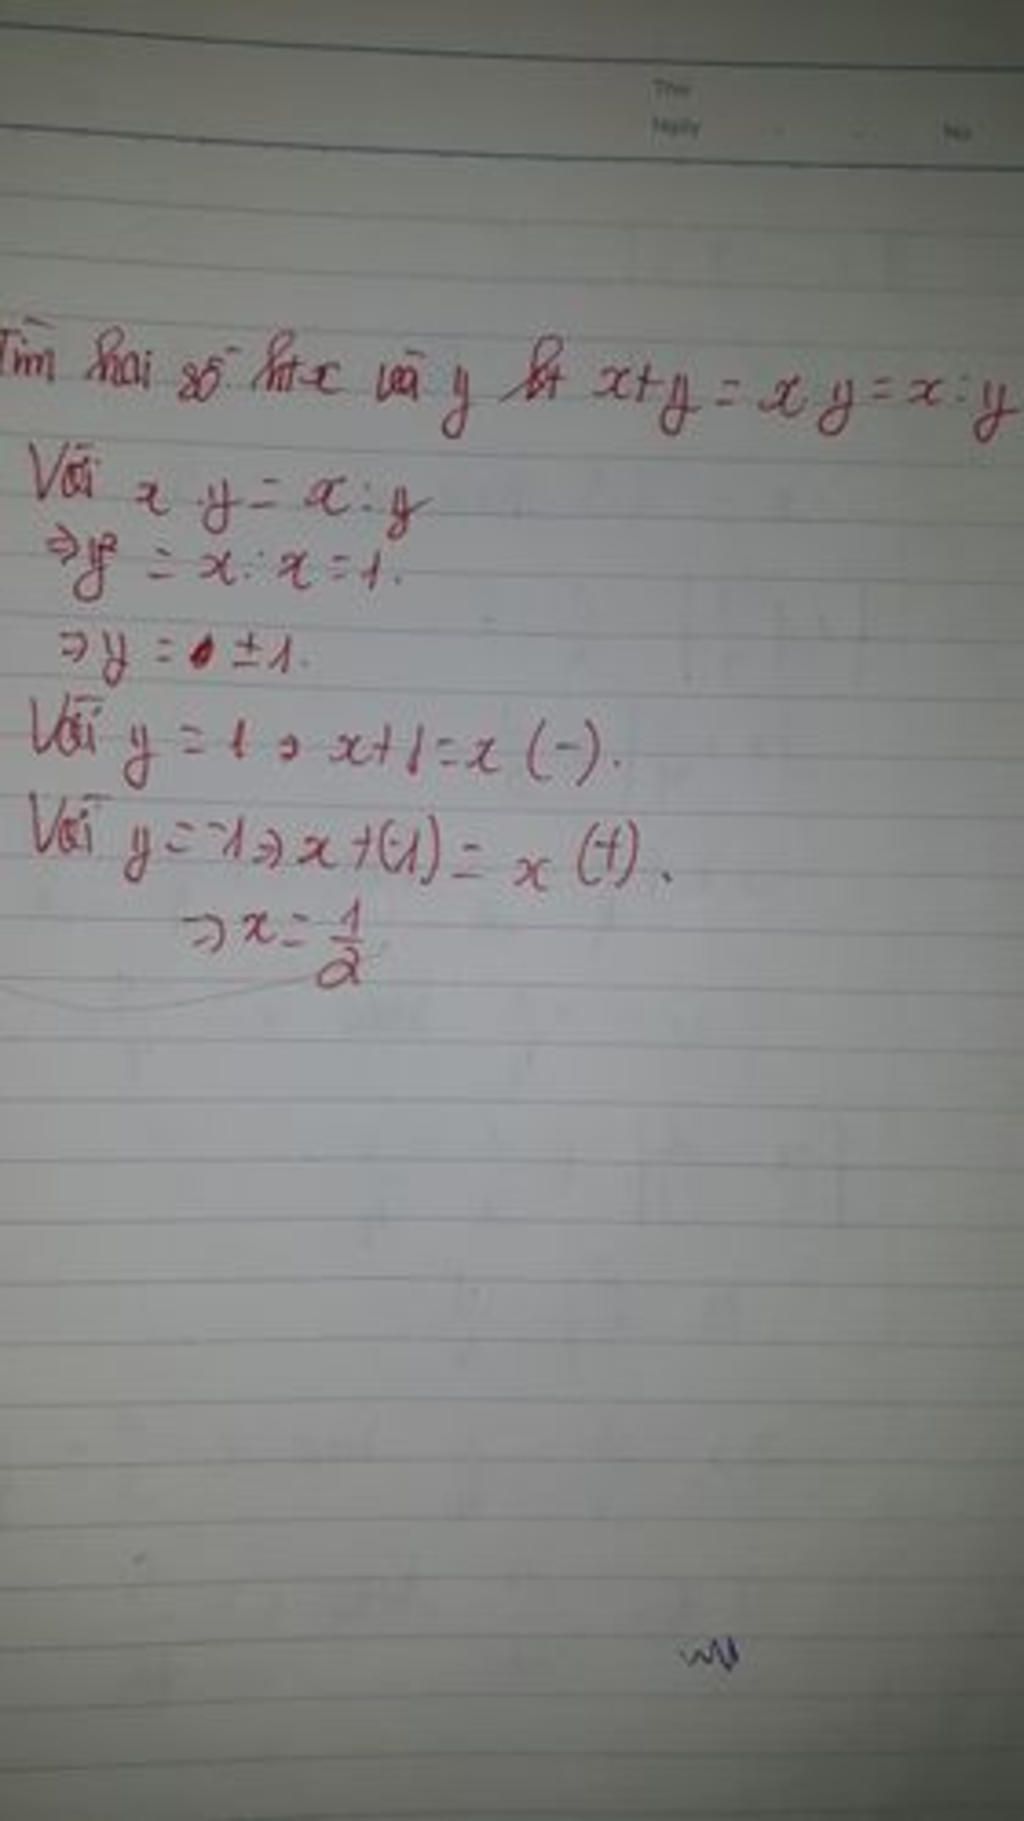 Thứ
Ngày No
Tìm hai số ht x và y bt x+y = x.y = x:y
Với x.y = x:y
⇒ y² = x:x = 1.
⇒ y = ±1.
Với y = 1 ⇒ x+1 = x (-).
Với y = -1 ⇒ x+(-1) = x(-1).
⇒ x = 1/2